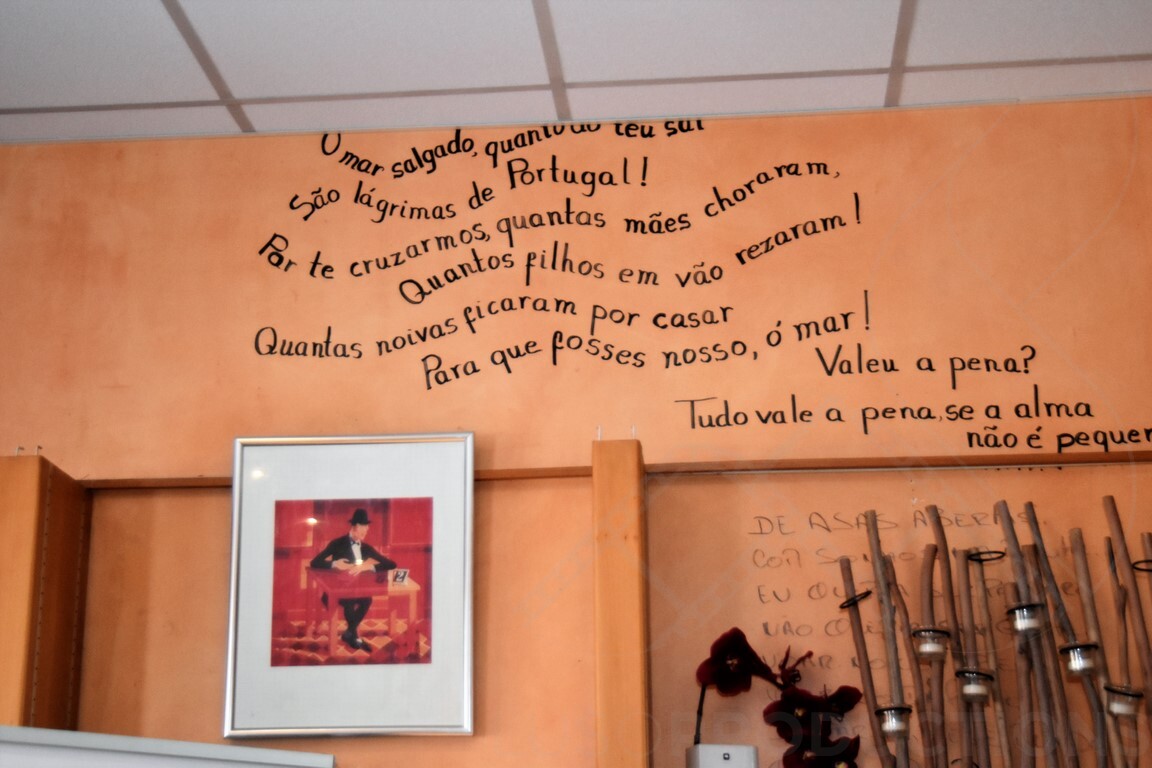 O mar salgado, quanto do teu sal
São lágrimas de Portugal!
Por te cruzarmos, quantas mães choraram,
Quantos filhos em vão rezaram!
Quantas noivas ficaram por casar
Para que fosses nosso, ó mar!
Valeu a pena?
Tudo vale a pena, se a alma
não é pequen
DE ASAS ABERTAS
COM
EU
NÃO
2